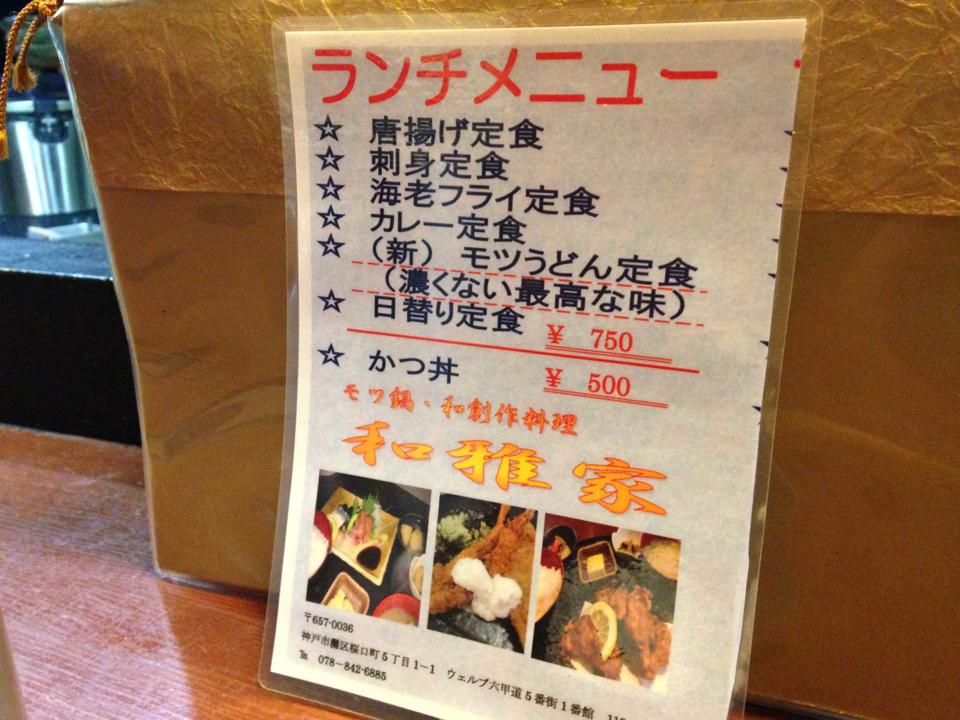 ランチメニュー
☆ 唐揚げ定食
☆ 刺身定食
☆ 海老フライ定食
☆ カレー定食
☆ (新) モツうどん定食
(濃くない最高な味)
☆ 日替り定食 ¥ 750
☆ かつ丼 ¥ 500
モツ鍋・和創作料理
和雅家
〒657-0036
神戸市灘区桜口町5丁目1-1 ウェルブ六甲道5番街1番館
℡ 078-842-6885